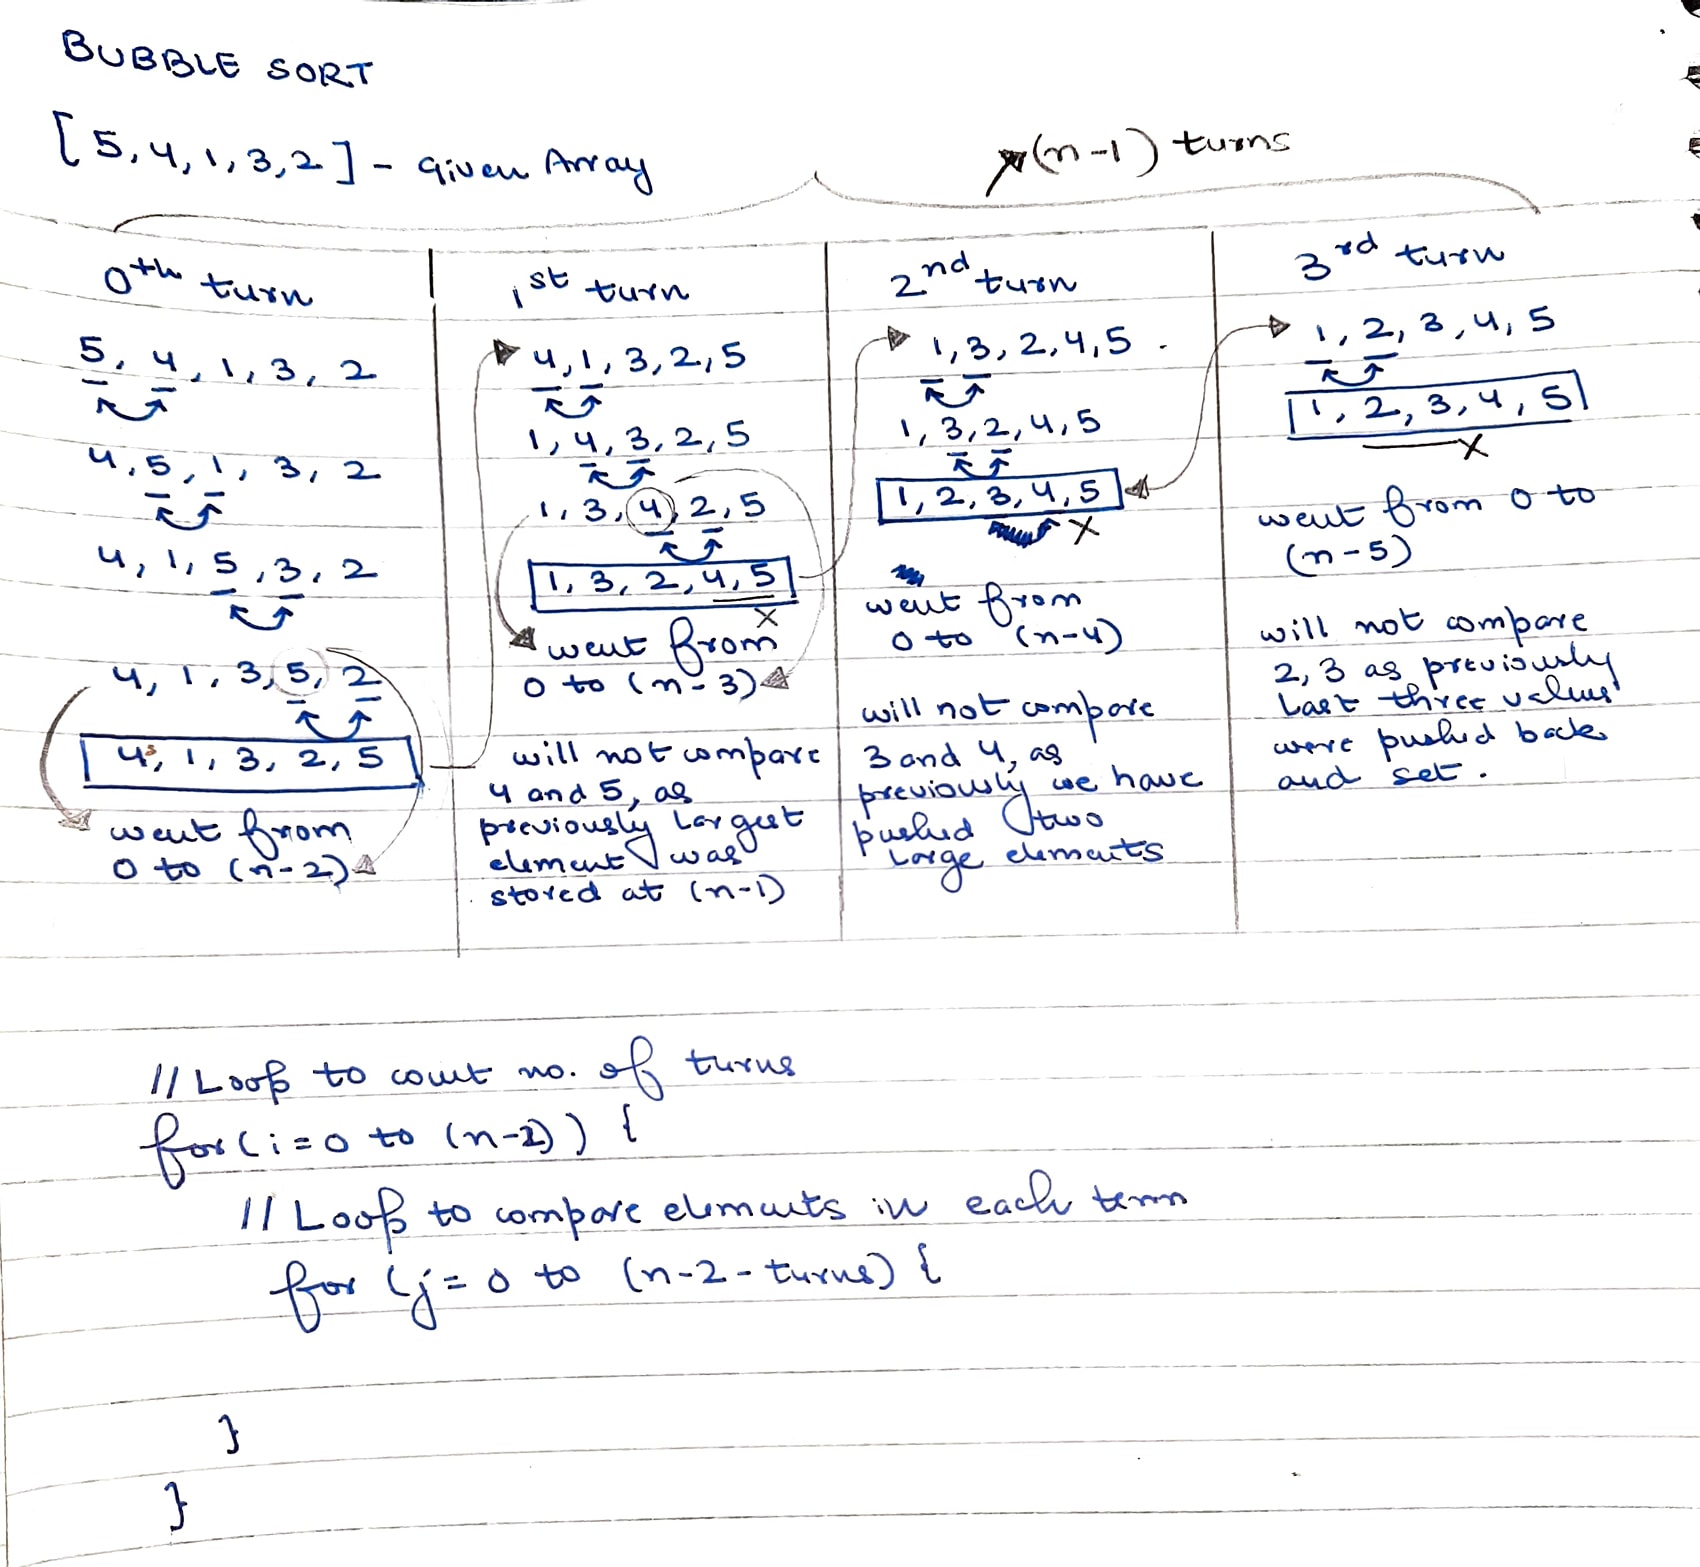 BUBBLE SORT
[5,4,1,3,2] - Given Array
(n-1) turns
0th turn
5, 4, 1, 3, 2
4, 5, 1, 3, 2
4, 1, 5, 3, 2
4, 1, 3, 5, 2
4, 1, 3, 2, 5
went from
0 to (n-2)
1st turn
4,1,3,2,5
1,4,3,2,5
1,3,4,2,5
1,3,2,4,5
x
went from
0 to (n-3)
will not compare
4 and 5, as
previously largest
element was
stored at (n-1)
2nd turn
1,3,2,4,5
1,3,2,4,5
1,2,3,4,5
x
went from
0 to (n-4)
will not compare
3 and 4, as
previously we have
pushed two
large elements
3rd turn
1,2,3,4,5
1,2,3,4,5
x
went from 0 to
(n-5)
will not compare
2,3 as previously
last three values
were pushed back
and set.
// Loop to count no. of turns
for(i=0 to (n-2)) {
// Loop to compare elements in each term
for (j=0 to (n-2-turns) {
}
}